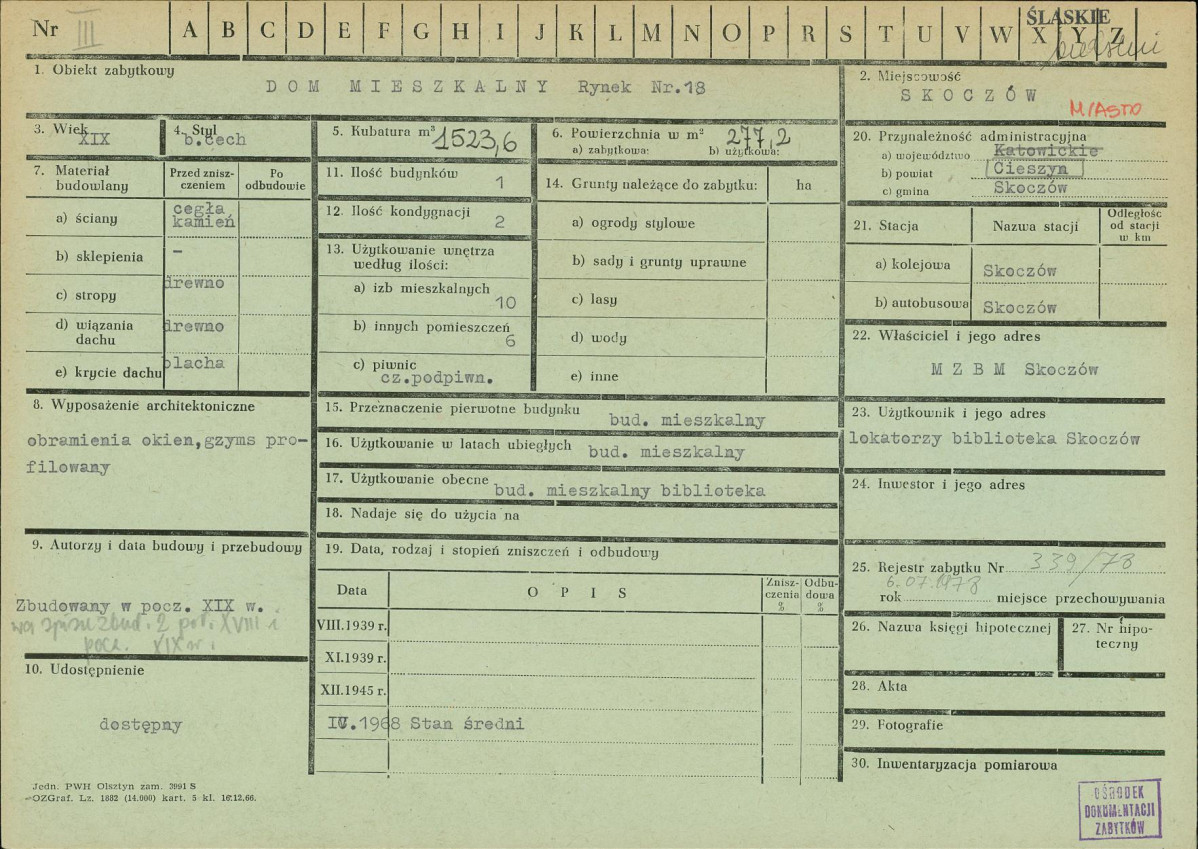 Nr III A B C D E F G H I J K L M N O P R S T U V W X Y Z
ŚLĄSKIE
1. Obiekt zabytkowy
DOM MIESZKALNY Rynek Nr.18
2. Miejscowość
SKOCZÓW
MIASTO
3. Wiek
XIX
4. Styl
b.cech
5. Kubatura m³
1523,6
6. Powierzchnia w m² 277,2
a) zabytkowa: b) użytkowa:
7. Materiał budowlany
Przed zniszczeniem
Po odbudowie
a) ściany
cegła
kamień
b) sklepienia
–
c) stropy
drewno
d) wiązania dachu
drewno
e) krycie dachu
blacha
8. Wyposażenie architektoniczne
obramienia okien,gzyms pro-
filowany
9. Autorzy i data budowy i przebudowy
Zbudowany w pocz. XIX w.
wg spisu zbud. 2 poł. XVIII i
pocz. XIX w.
10. Udostępnienie
dostępny
11. Ilość budynków
1
12. Ilość kondygnacji
2
13. Użytkowanie wnętrza
według ilości:
a) izb mieszkalnych
10
b) innych pomieszczeń
6
c) piwnic
cz.podpiwn.
14. Grunty należące do zabytku: ha
a) ogrody stylowe
b) sady i grunty uprawne
c) lasy
d) wody
e) inne
15. Przeznaczenie pierwotne budynku bud. mieszkalny
16. Użytkowanie w latach ubiegłych bud. mieszkalny
17. Użytkowanie obecne bud. mieszkalny biblioteka
18. Nadaje się do użycia na
19. Data, rodzaj i stopień zniszczeń i odbudowy
Data OPIS
Zniszczenia %
Odbudowa %
VIII.1939 r.
XI.1939 r.
XII.1945 r.
IV.1968 Stan średni
20. Przynależność administracyjna
a) województwo Katowickie
b) powiat Cieszyn
c) gmina Skoczów
21. Stacja
Nazwa stacji
Odległość
od stacji
w km
a) kolejowa Skoczów
b) autobusowa Skoczów
22. Właściciel i jego adres
M Z B M Skoczów
23. Użytkownik i jego adres
lokatorzy biblioteka Skoczów
24. Inwestor i jego adres
25. Rejestr zabytku Nr 339/78
6.07.1978
rok miejsce przechowywania
26. Nazwa księgi hipotecznej
27. Nr hipo-
teczny
28. Akta
29. Fotografie
30. Inwentaryzacja pomiarowa
Jedn. PWH Olsztyn zam. 3991 S
OZGraf. Lz. 1882 (14.000) kart. 5 kl. 16.12.66.
OŚRODEK
DOKUMENTACJI
ZABYTKÓW